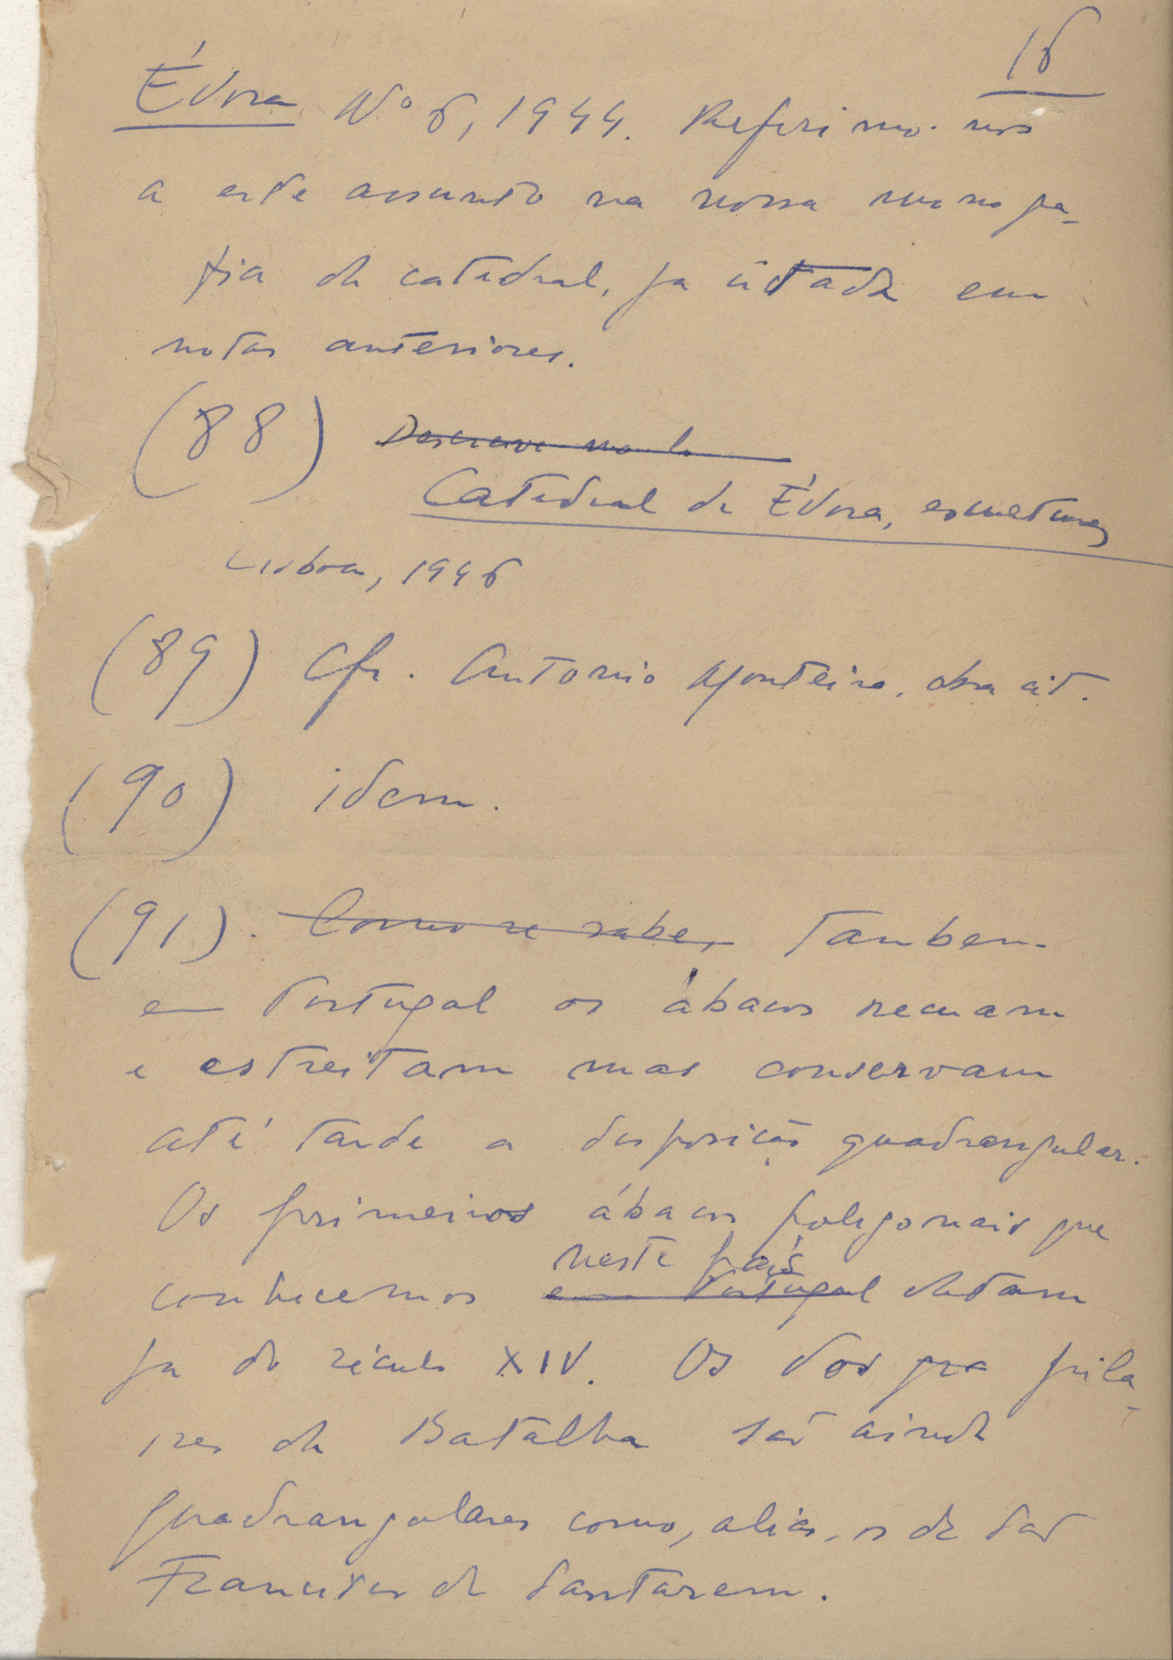 16
Évora Nº 6, 1944. Referimo-nos
a este assunto na nossa monogra-
fia da catedral, ja citada em
notas anteriores.
(88) Descreve-mo-la
Catedral de Évora, esculturas
Lisboa, 1946
(89) Cfr. Antonio Monteiro, obra cit.
(90) idem.
(91). Como se sabe, Tambem
em Portugal os ábacos recuam
e estreitam mas conservam
até tarde a disposição quadrangular.
Os primeiros ábacos poligonais que
neste país
conhecemos em Portugal datam
ja do século XIV. Os dos pila-
res da Batalha são ainda
quadrangulares como, aliás, os de São
Francisco de Santarem.